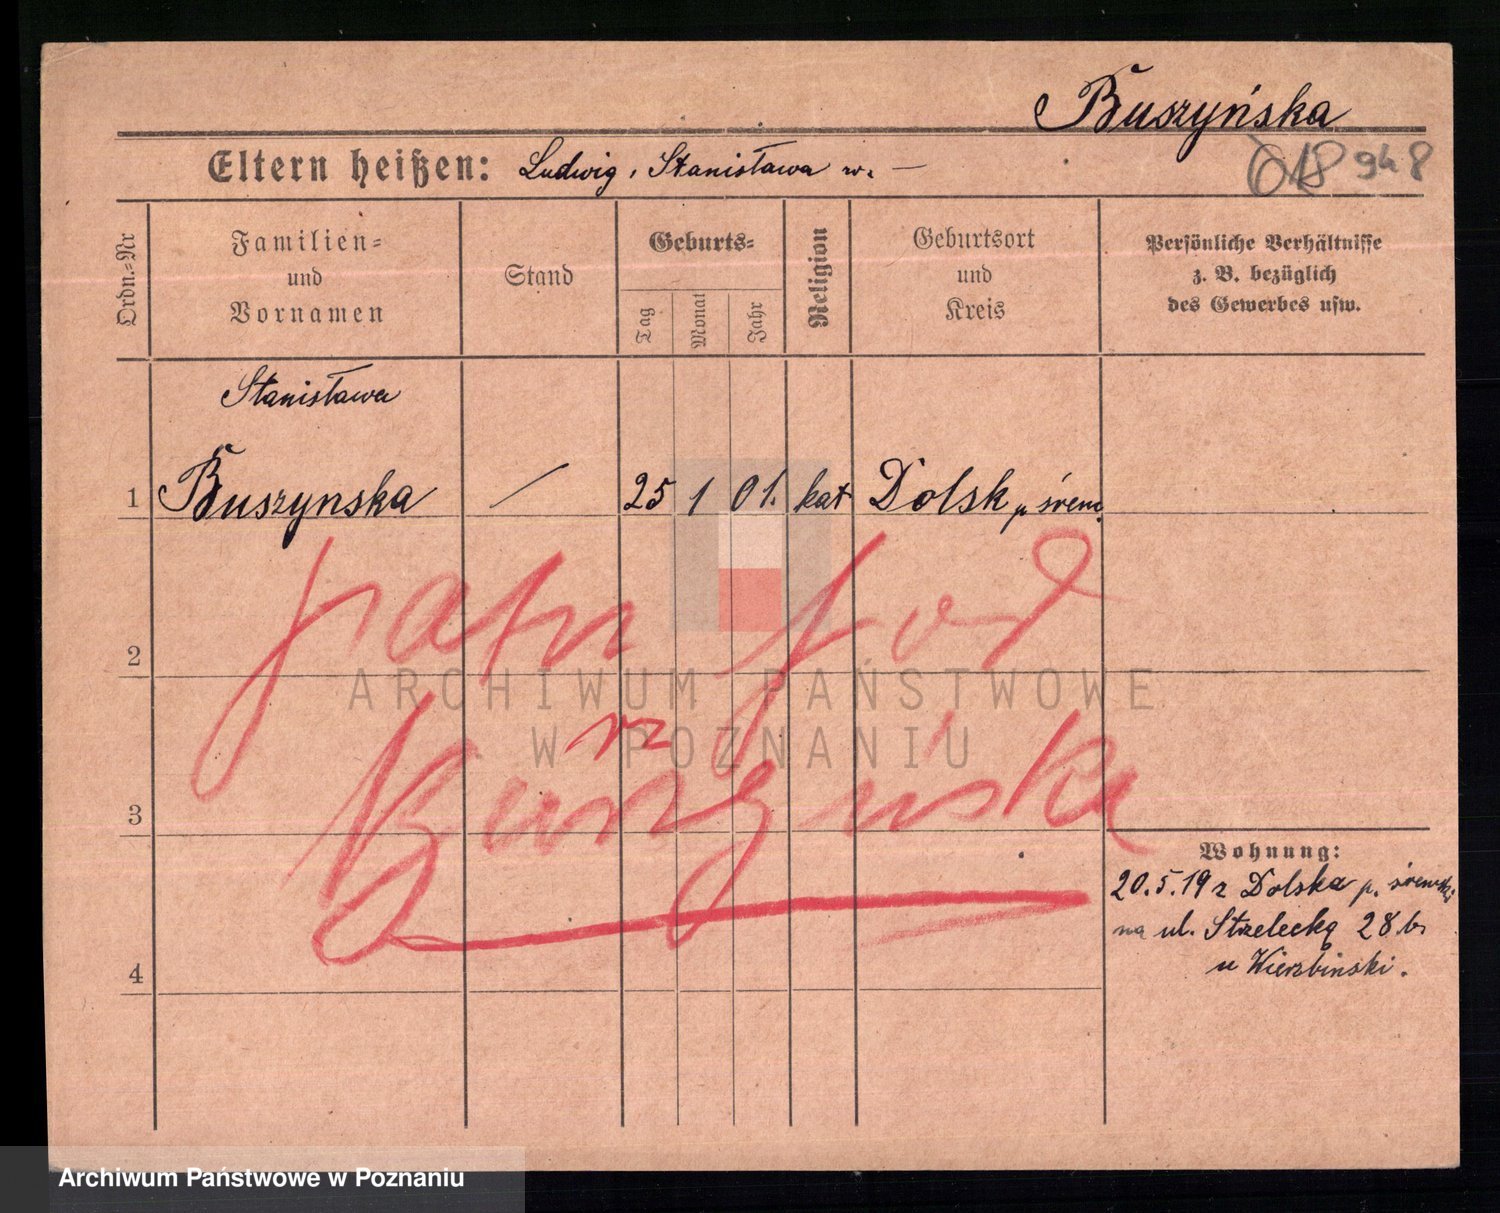 Buszyńska
Eltern heißen: Ludwig, Stanisława w. —
948
Ordn.-Nr
Familien-
und
Vornamen
Stand
Geburts-
Tag
Monat
Jahr
Religion
Geburtsort
und
Kreis
Persönliche Verhältnisse
z. B. bezüglich
des Gewerbes usw.
Stanisława
1 Buszynska / 25 1 01. kat Dolsk p śrem.
2
patrz pod
3
4
Wohnung:
20.5.19 z Dolska p. śremski
na ul. Strzelecką 28 b.
u Wierzbiński.
ARCHIWUM PAŃSTWOWE
W POZNANIU
Archiwum Państwowe w Poznaniu